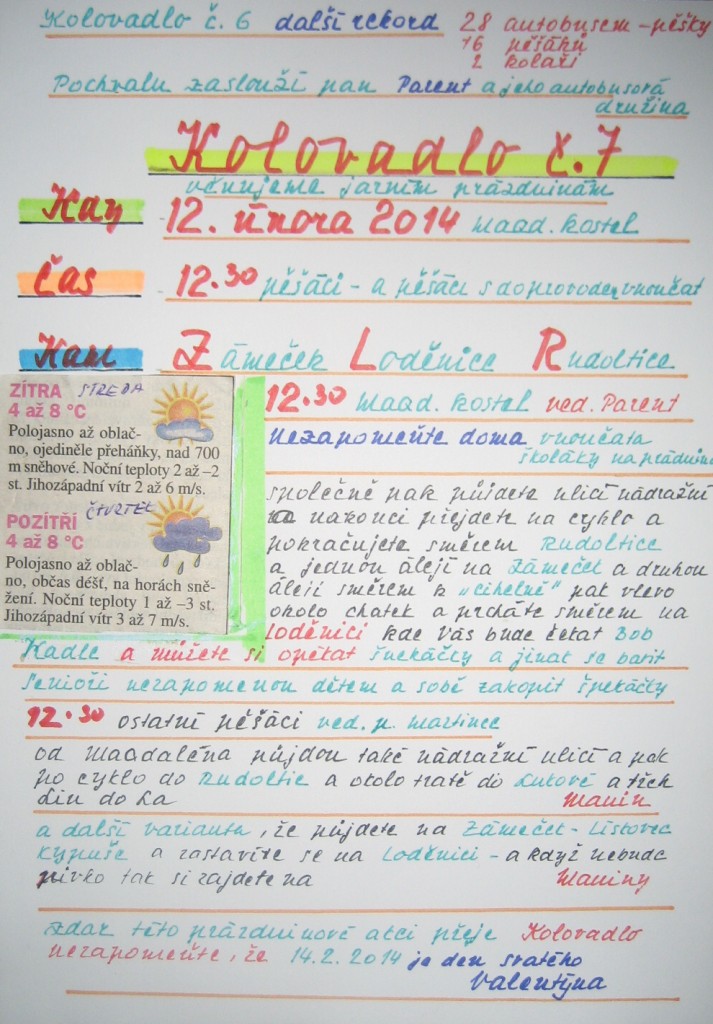 Kolovadlo č. 6 další rekord 28 autobusem - pěšky
+6 pěšáků
2 kolaři
Pochvalu zaslouží pan Parent a jeho autobusová
družina
Kolovadlo č.7
věnujeme jarním prázdninám
Kdy 12. února 2014 Magd. kostel
Čas 12.30 pěšáci - a pěšáci s doprovodem vnoučat
Kam Zámeček Loděnice Rudoltice
ZÍTRA STŘEDA
4 až 8 °C
Polojasno až oblač-
no, ojediněle přeháňky, nad 700
m sněhové. Noční teploty 2 až –2
st. Jihozápadní vítr 2 až 6 m/s.
POZÍTŘÍ ČTVRTEK
4 až 8 °C
Polojasno až oblač-
no, občas déšť, na horách sně-
žení. Noční teploty 1 až –3 st.
Jihozápadní vítr 3 až 7 m/s.
12.30 Magd. kostel ved. Parent
Nezapomeňte doma vnoučata
školáky na prázdnin
společně pak půjdete ulicí nádražní
na nakonci přejdete na cyklo a
pokračujete směrem Rudoltice
a jednou álejí na Zámeček a druhou
álejí směrem k "cihelně" pak vlevo
okolo chatek a prcháte směrem na
Loděnici kde Vás bude čekat Bob
Kadle a můžete si opékat špekáčky a jinak se bavit
Senioři nezapomenou dětem a sobě zakoupit špekáčky
12.30 ostatní pěšáci ved. p. Martinec
od Magdaléna půjdou také nádražní ulicí a pak
po cyklo do Rudoltic a okolo tratě do Lukové a třeh
Lin do La Manin
a další varianta, že půjdete na Zámeček - Listovec
Kypuše a zastavíte se na Loděnici - a když nebude
pivko tak si zajdete na Maniny
Zdar této prázdninové akci přeje Kolovadlo
nezapomeňte, že 14.2. 2014 je den svatého
Valentýna